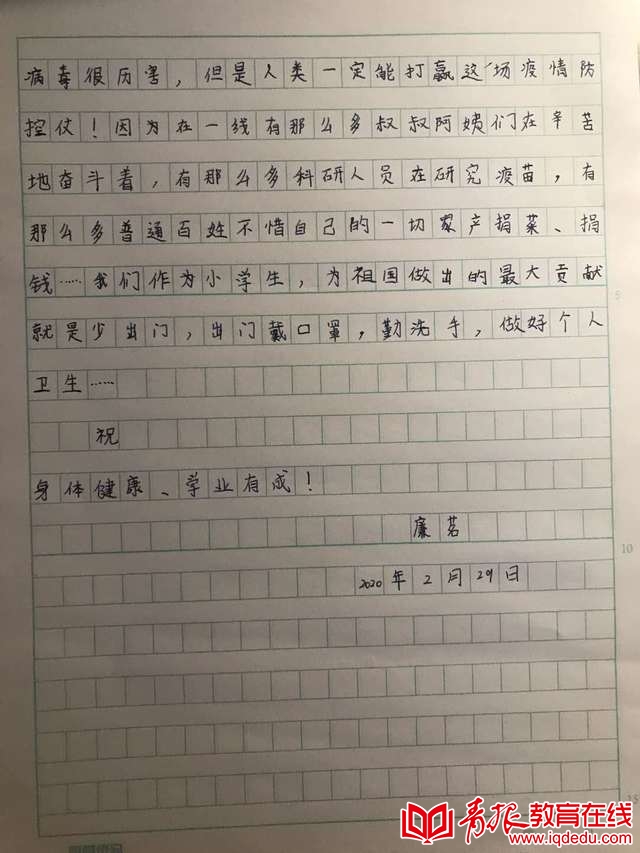 病毒很历害，但是人类一定能打赢这场疫情防
控仗！因为在一线有那么多叔叔阿姨们在辛苦
地奋斗着，有那么多科研人员在研究疫苗，有
那么多普通百姓不惜自己的一切家产捐菜、捐
钱……我们作为小学生，为祖国做出的最大贡献
就是少出门，出门戴口罩，勤洗手，做好个人
卫生……
祝
身体健康、学业有成！
廉茗
2020年2月29日
5
10
15
青报教育在线
www.iqdedu.com